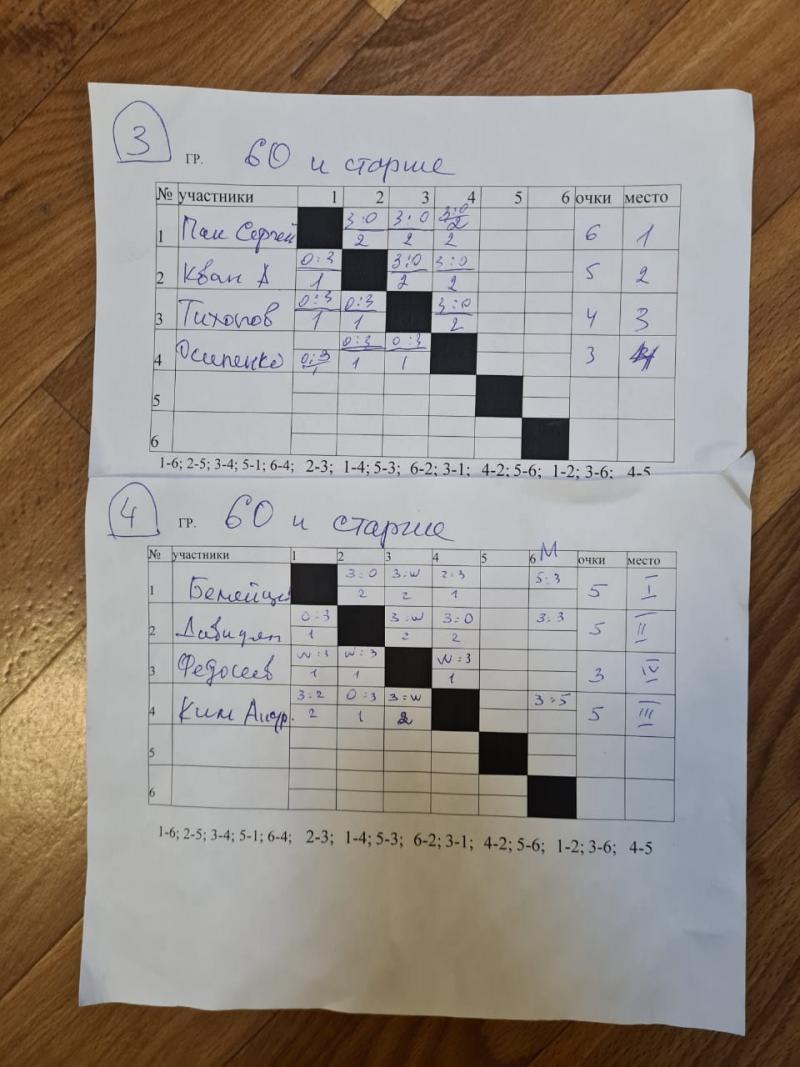 3 ГР. 60 и старше
№ участники 1 2 3 4 5 6 очки место
3:0 3:0 3:0
1 Пак Сергей 2 2 2 2 6 1
0:3 3:0 3:0
2 Кван А 1 2 2 5 2
0:3 0:3 3:0
3 Тихонов 1 1 2 4 3
0:3 0:3 0:3
4 Осипенко 1 1 1 3 4
5
6
1-6; 2-5; 3-4; 5-1; 6-4; 2-3; 1-4; 5-3; 6-2; 3-1; 4-2; 5-6; 1-2; 3-6; 4-5
4 ГР. 60 и старше
М
№ участники 1 2 3 4 5 6 очки место
3:0 3:w 2:3 5:3
1 2 2 1 5 I
0:3 3:w 3:0 3:3
2 Давидян 1 2 2 5 II
w:3 w:3 w:3
3 Федосеев 1 1 1 3 IV
3:2 0:3 3:w 3:5
4 Ким Андр. 2 1 2 5 III
5
6
1-6; 2-5; 3-4; 5-1; 6-4; 2-3; 1-4; 5-3; 6-2; 3-1; 4-2; 5-6; 1-2; 3-6; 4-5